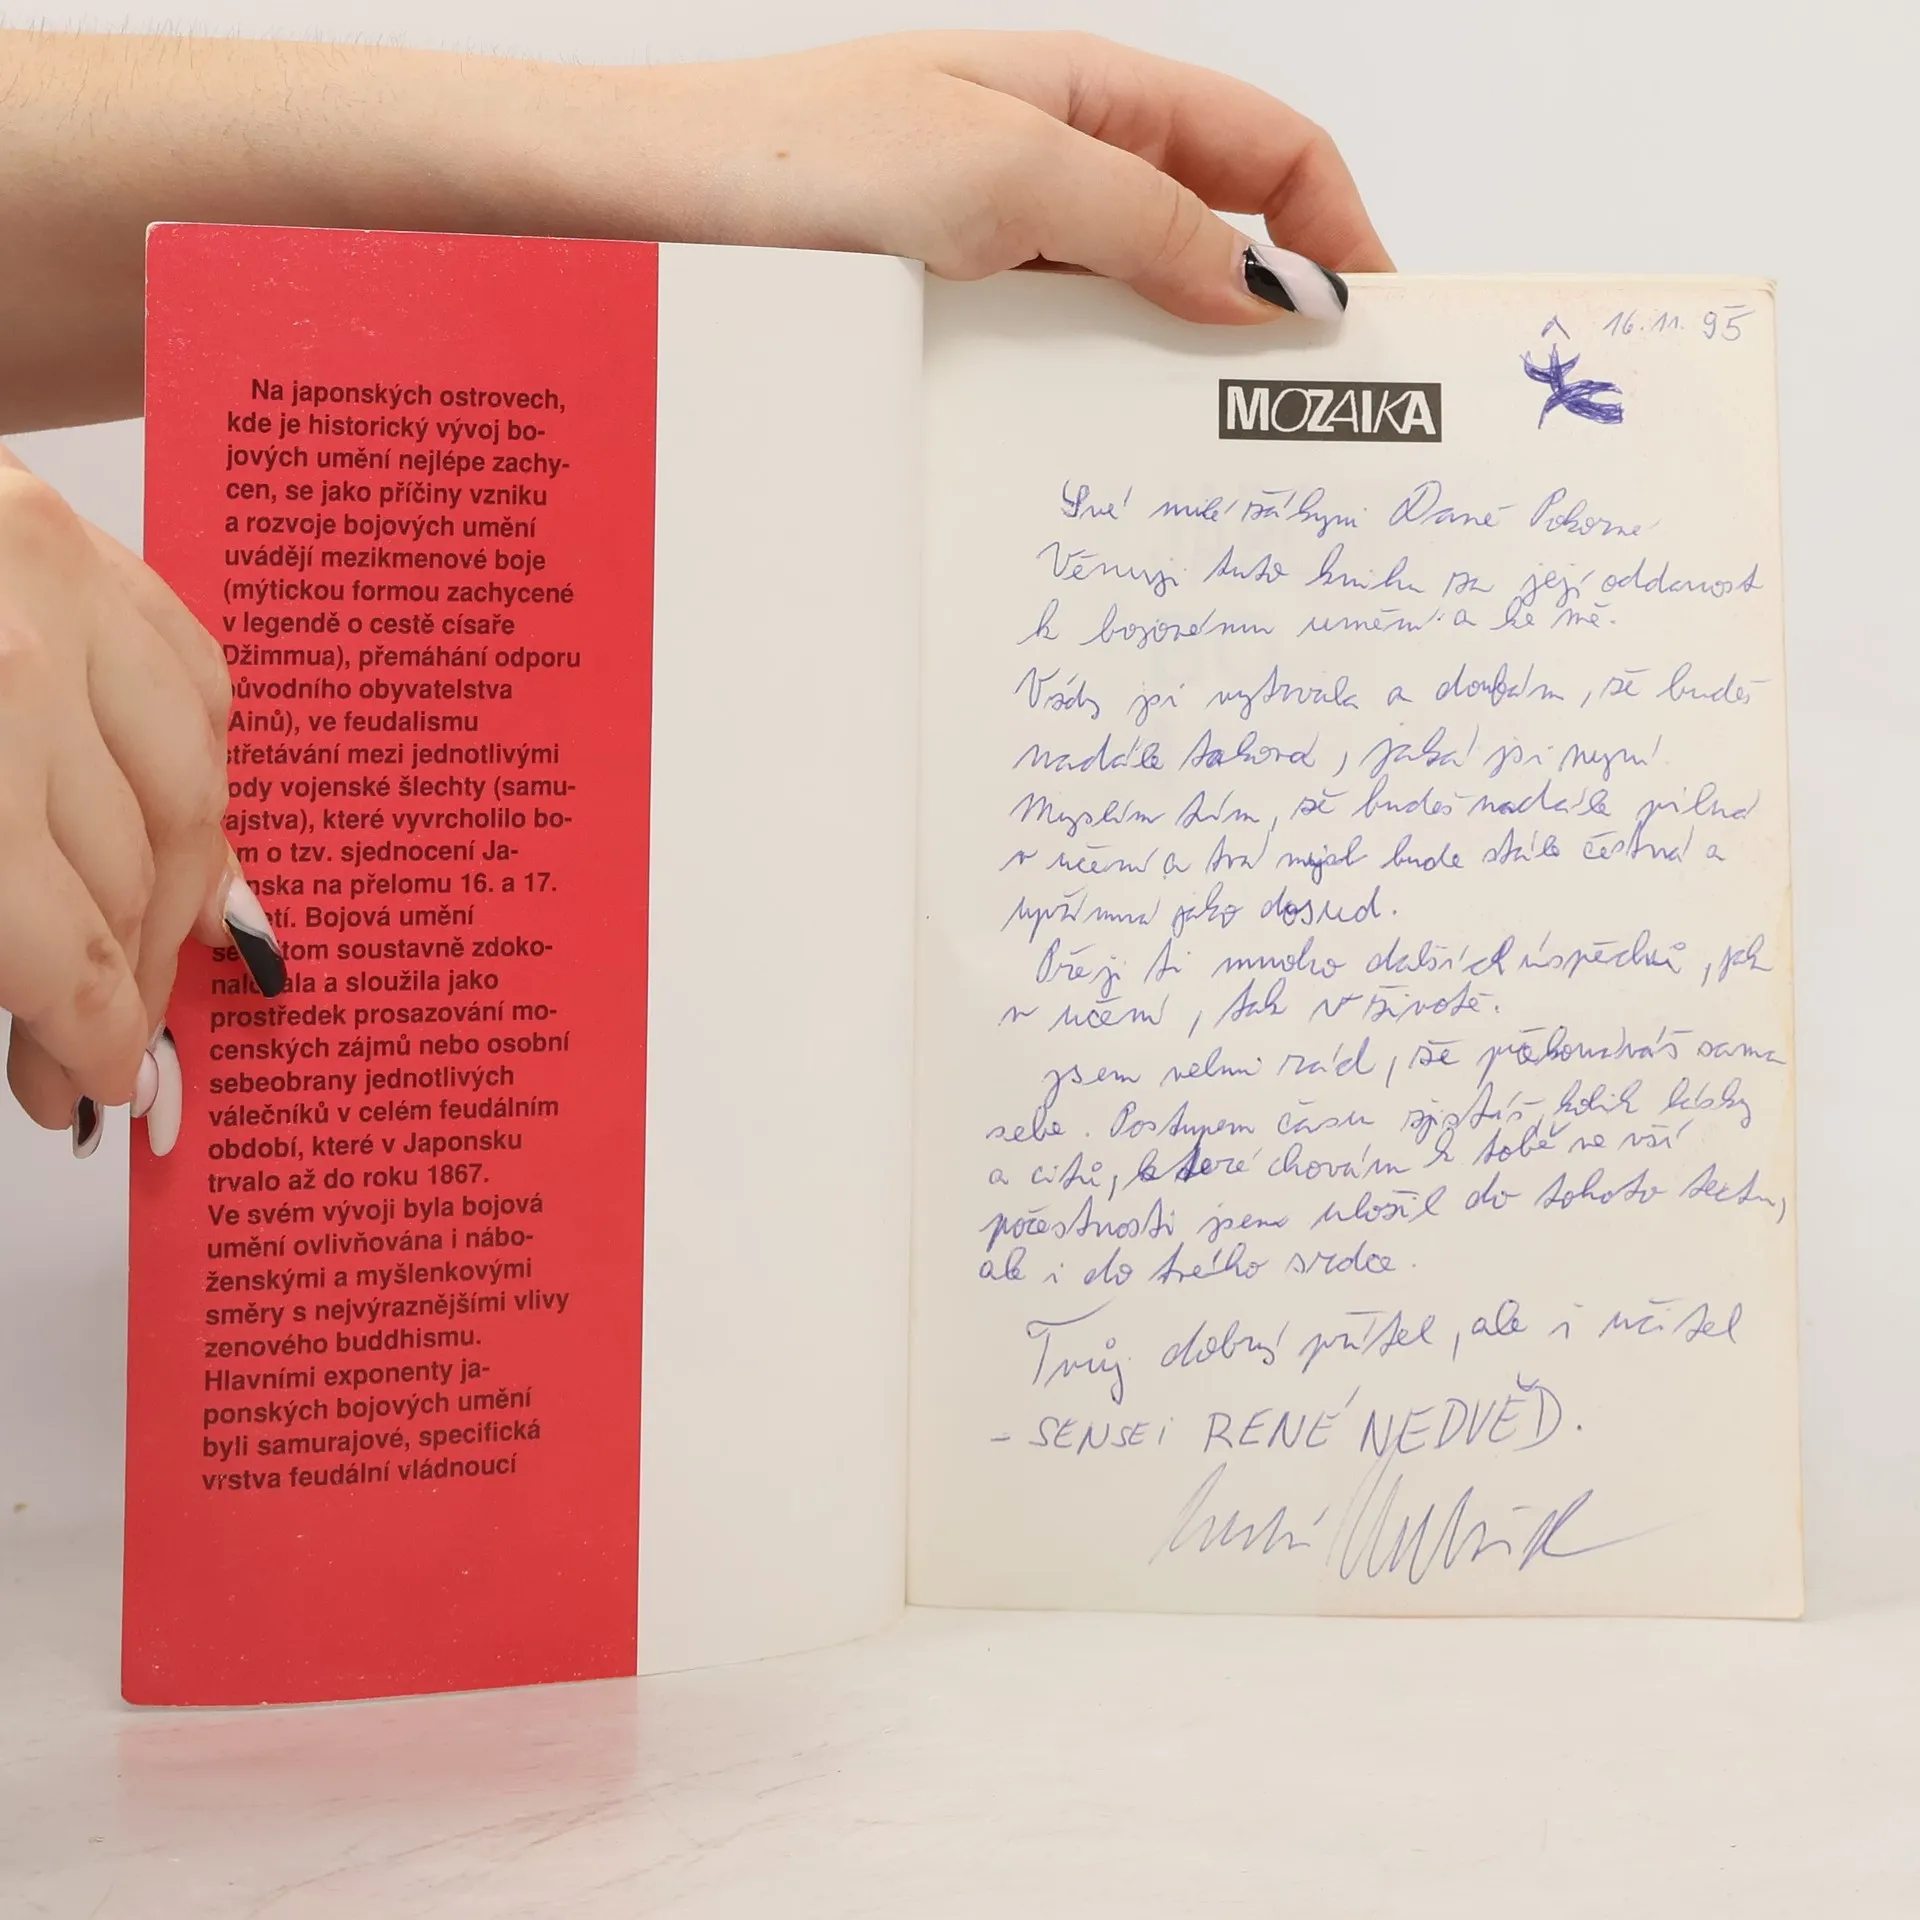 Na japonských ostrovech,
kde je historický vývoj bo-
jových umění nejlépe zachy-
cen, se jako příčiny vzniku
a rozvoje bojových umění
uvádějí mezikmenové boje
(mýtickou formou zachycené
v legendě o cestě císaře
Džimmua), přemáhání odporu
ůvodního obyvatelstva
Ainů), ve feudalismu
střetávání mezi jednotlivými
ody vojenské šlechty (samu-
ajstva), které vyvrcholilo bo-
m o tzv. sjednocení Ja-
nska na přelomu 16. a 17.
etí. Bojová umění
se tom soustavně zdoko-
nal ala a sloužila jako
prostředek prosazování mo-
cenských zájmů nebo osobní
sebeobrany jednotlivých
válečníků v celém feudálním
období, které v Japonsku
trvalo až do roku 1867.
Ve svém vývoji byla bojová
umění ovlivňována i nábo-
ženskými a myšlenkovými
směry s nejvýraznějšími vlivy
zenového buddhismu.
Hlavními exponenty ja-
ponských bojových umění
byli samurajové, specifická
vrstva feudální vládnoucí
16.11.95
MOZAIKA
Své milé žákyni Daně Pokorné
Věnuji tuto knihu za její oddanost
k bojovému umění a ke mě.
Vždy jsi vytrvala a doufám, že budeš
nadále taková, jaká jsi nyní.
Myslím tím, že budeš nadále pilná
v učení a tvá mysl bude stále čestná a
upřímná jako dosud.
Přeji ti mnoho dalších úspěchů, jak
v učení, tak v životě.
jsem velmi rád, že překonáváš sama
sebe. Postupem času zjistíš, kolik lásky
a citů, které chovám k tobě ve vší
počestnosti jsem vložil do tohoto textu,
ale i do tvého srdce.
Tvůj dobrý přítel, ale i učitel
- SENSEI RENÉ NEDVĚD.